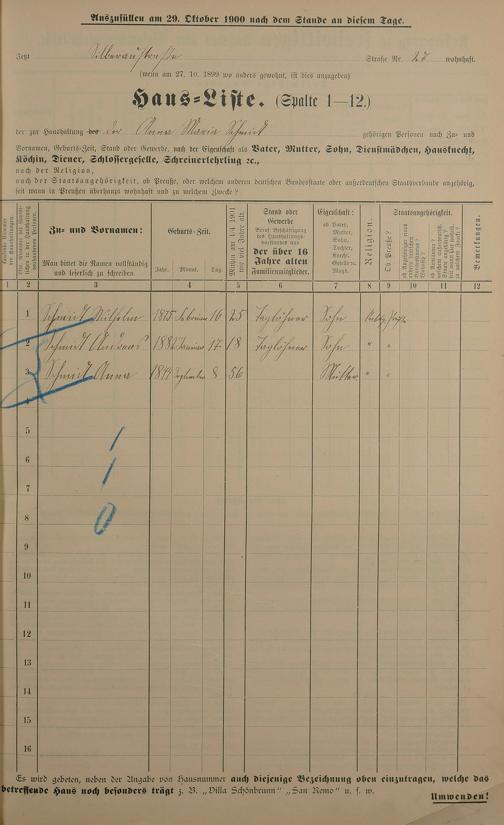 Auszufüllen am 29. Oktober 1900 nach dem Stande an diesem Tage.
Jetzt Straße Nr. 23 wohnhaft.
(wenn am 27. 10. 1899 wo anders gewohnt, ist dies anzugeben)
Haus-Liste. (Spalte 1—12.)
der zur Haushaltung der Anna Maria Schmidt gehörigen Personen nach Zu- und
Vornamen, Geburts-Zeit, Stand oder Gewerbe, nach der Eigenschaft als Vater, Mutter, Sohn, Dienstmädchen, Hausknecht,
Köchin, Diener, Schlossergeselle, Schreinerlehrling ꝛc.,
nach der Religion,
nach der Staatsangehörigkeit, ob Preuße, oder welchem anderen deutschen Bundesstaate oder außerdeutschen Staatsverbande angehörig,
seit wann in Preußen überhaupt wohnhaft und zu welchem Zwecke?
Zu- und Vornamen:
Man bittet die Namen vollständig
und leserlich zu schreiben.
Geburts-Zeit.
Jahr. Monat. Tag.
Mithin am 1/4 1901
wie viel Jahre alt.
Stand oder
Gewerbe
der über 16
Jahre alten
Familienmitglieder.
Eigenschaft:
ob Vater,
Mutter,
Sohn,
Tochter,
Knecht,
Geselle u.
Magd.
Religion.
Staatsangehörigkeit.
Ob Preuße?
Bemerkungen.
1 2 3 4 5 6 7 8 9 10 11 12
1 Schmidt Wilhelm 1875 Februar 16 25 Taglöhner Sohn
2 Schmidt Andreas 1882 Januar 17 18 Taglöhner Sohn " "
3 Schmidt Anna 1844 September 8 56 Mutter " "
4
5
6
7
8
9
10
11
12
13
14
15
16
Es wird gebeten, neben der Angabe von Hausnummer auch diejenige Bezeichnung oben einzutragen, welche das
betreffende Haus noch besonders trägt z. B. „Villa Schönbrunn" „San Remo" u. s. w.
Umwenden!